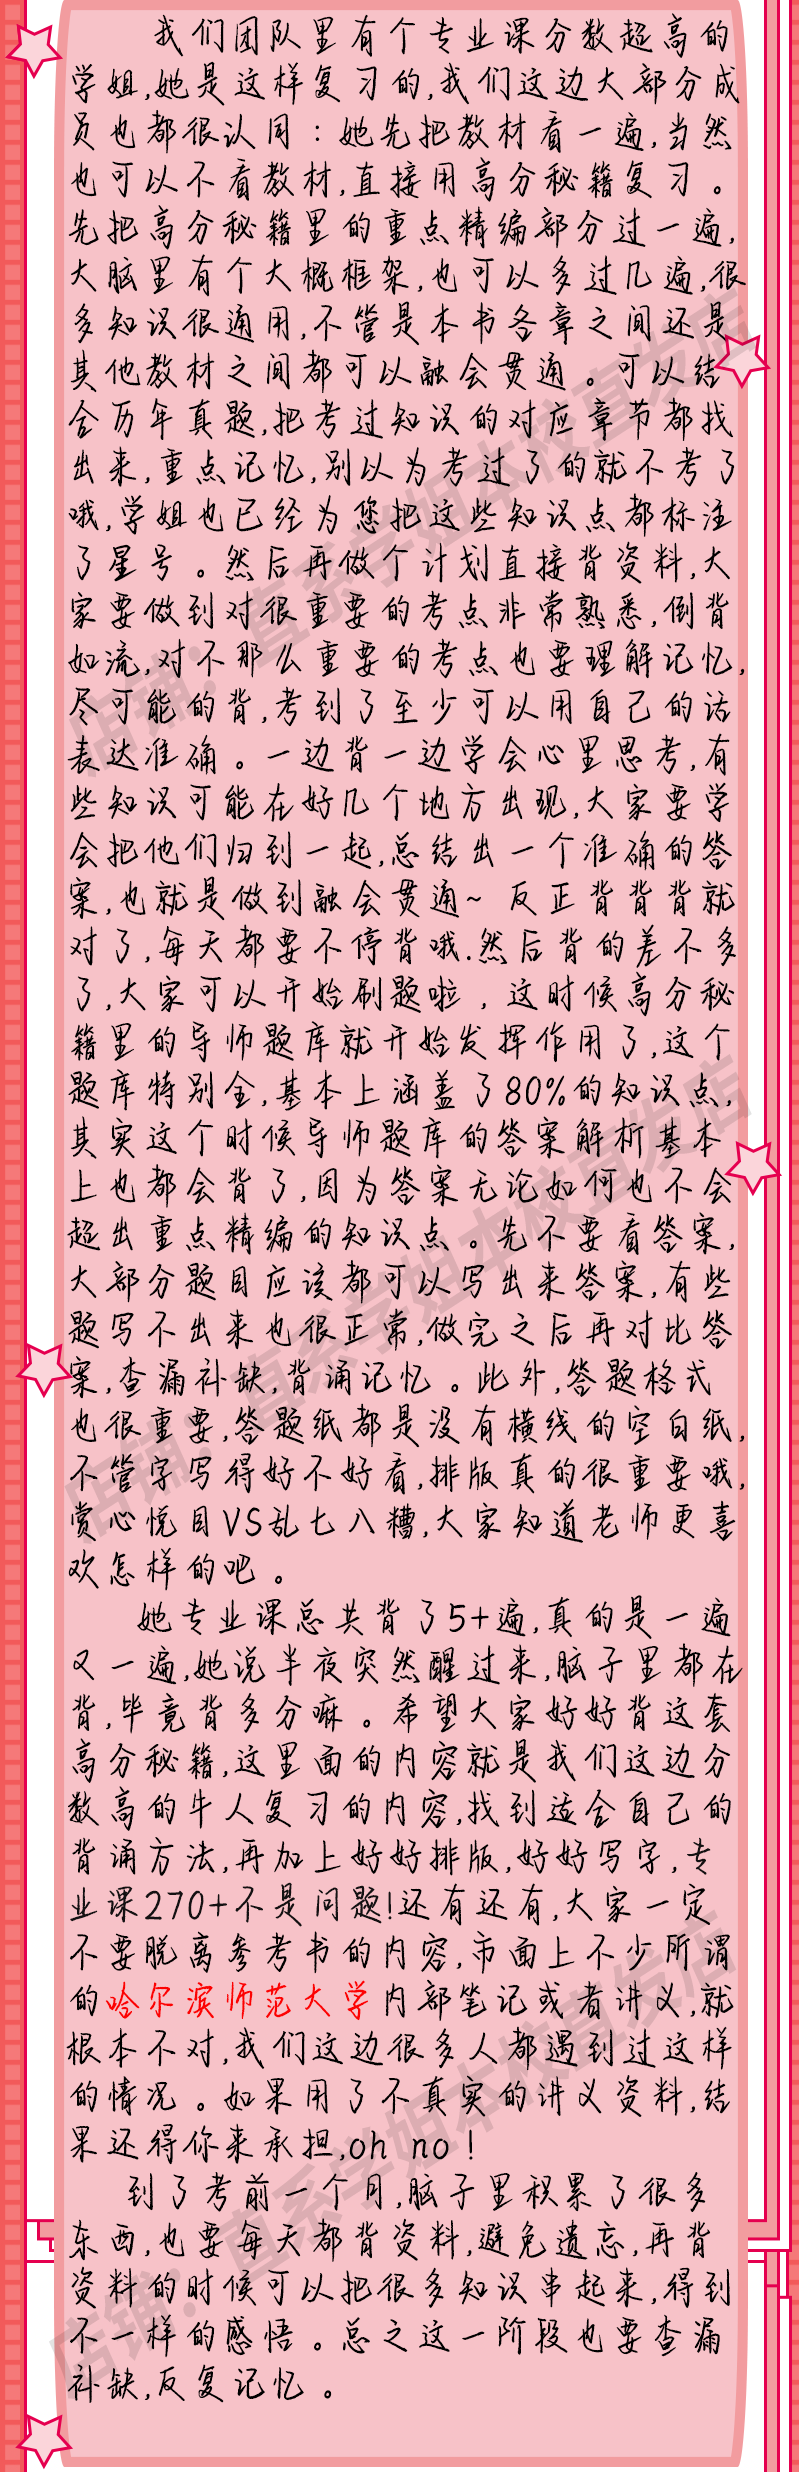 我们团队里有个专业课分数超高的
学姐,她是这样复习的,我们这边大部分成
员也都很认同：她先把教材看一遍,当然
也可以不看教材,直接用高分秘籍复习。
先把高分秘籍里的重点精编部分过一遍,
大脑里有个大概框架,也可以多过几遍,很
多知识很通用,不管是本书各章之间还是
其他教材之间都可以融会贯通。可以结
合历年真题,把考过知识的对应章节都找
出来,重点记忆,别以为考过了的就不考了
哦,学姐也已经为您把这些知识点都标注
了星号。然后再做个计划直接背资料,大
家要做到对很重要的考点非常熟悉,倒背
如流,对不那么重要的考点也要理解记忆,
尽可能的背,考到了至少可以用自己的话
表达准确。一边背一边学会心里思考,有
些知识可能在好几个地方出现,大家要学
会把他们归到一起,总结出一个准确的答
案,也就是做到融会贯通~ 反正背背背就
对了,每天都要不停背哦.然后背的差不多
了,大家可以开始刷题啦，这时候高分秘
籍里的导师题库就开始发挥作用了,这个
题库特别全,基本上涵盖了80%的知识点,
其实这个时候导师题库的答案解析基本
上也都会背了,因为答案无论如何也不会
超出重点精编的知识点。先不要看答案,
大部分题目应该都可以写出来答案,有些
题写不出来也很正常,做完之后再对比答
案,查漏补缺,背诵记忆。此外,答题格式
也很重要,答题纸都是没有横线的空白纸,
不管字写得好不好看,排版真的很重要哦,
赏心悦目VS乱七八糟,大家知道老师更喜
欢怎样的吧。
她专业课总共背了5+遍,真的是一遍
又一遍,她说半夜突然醒过来,脑子里都在
背,毕竟背多分嘛。希望大家好好背这套
高分秘籍,这里面的内容就是我们这边分
数高的牛人复习的内容,找到适合自己的
背诵方法,再加上好好排版,好好写字,专
业课270+不是问题!还有还有,大家一定
不要脱离参考书的内容,市面上不少所谓
的哈尔滨师范大学内部笔记或者讲义,就
根本不对,我们这边很多人都遇到过这样
的情况。如果用了不真实的讲义资料,结
果还得你来承担,oh no!
到了考前一个月,脑子里积累了很多
东西,也要每天都背资料,避免遗忘,再背
资料的时候可以把很多知识串起来,得到
不一样的感悟。总之这一阶段也要查漏
补缺,反复记忆。
店铺：直系学姐本校直发店
店铺：直系学姐本校直发店
店铺：直系学姐本校直发店